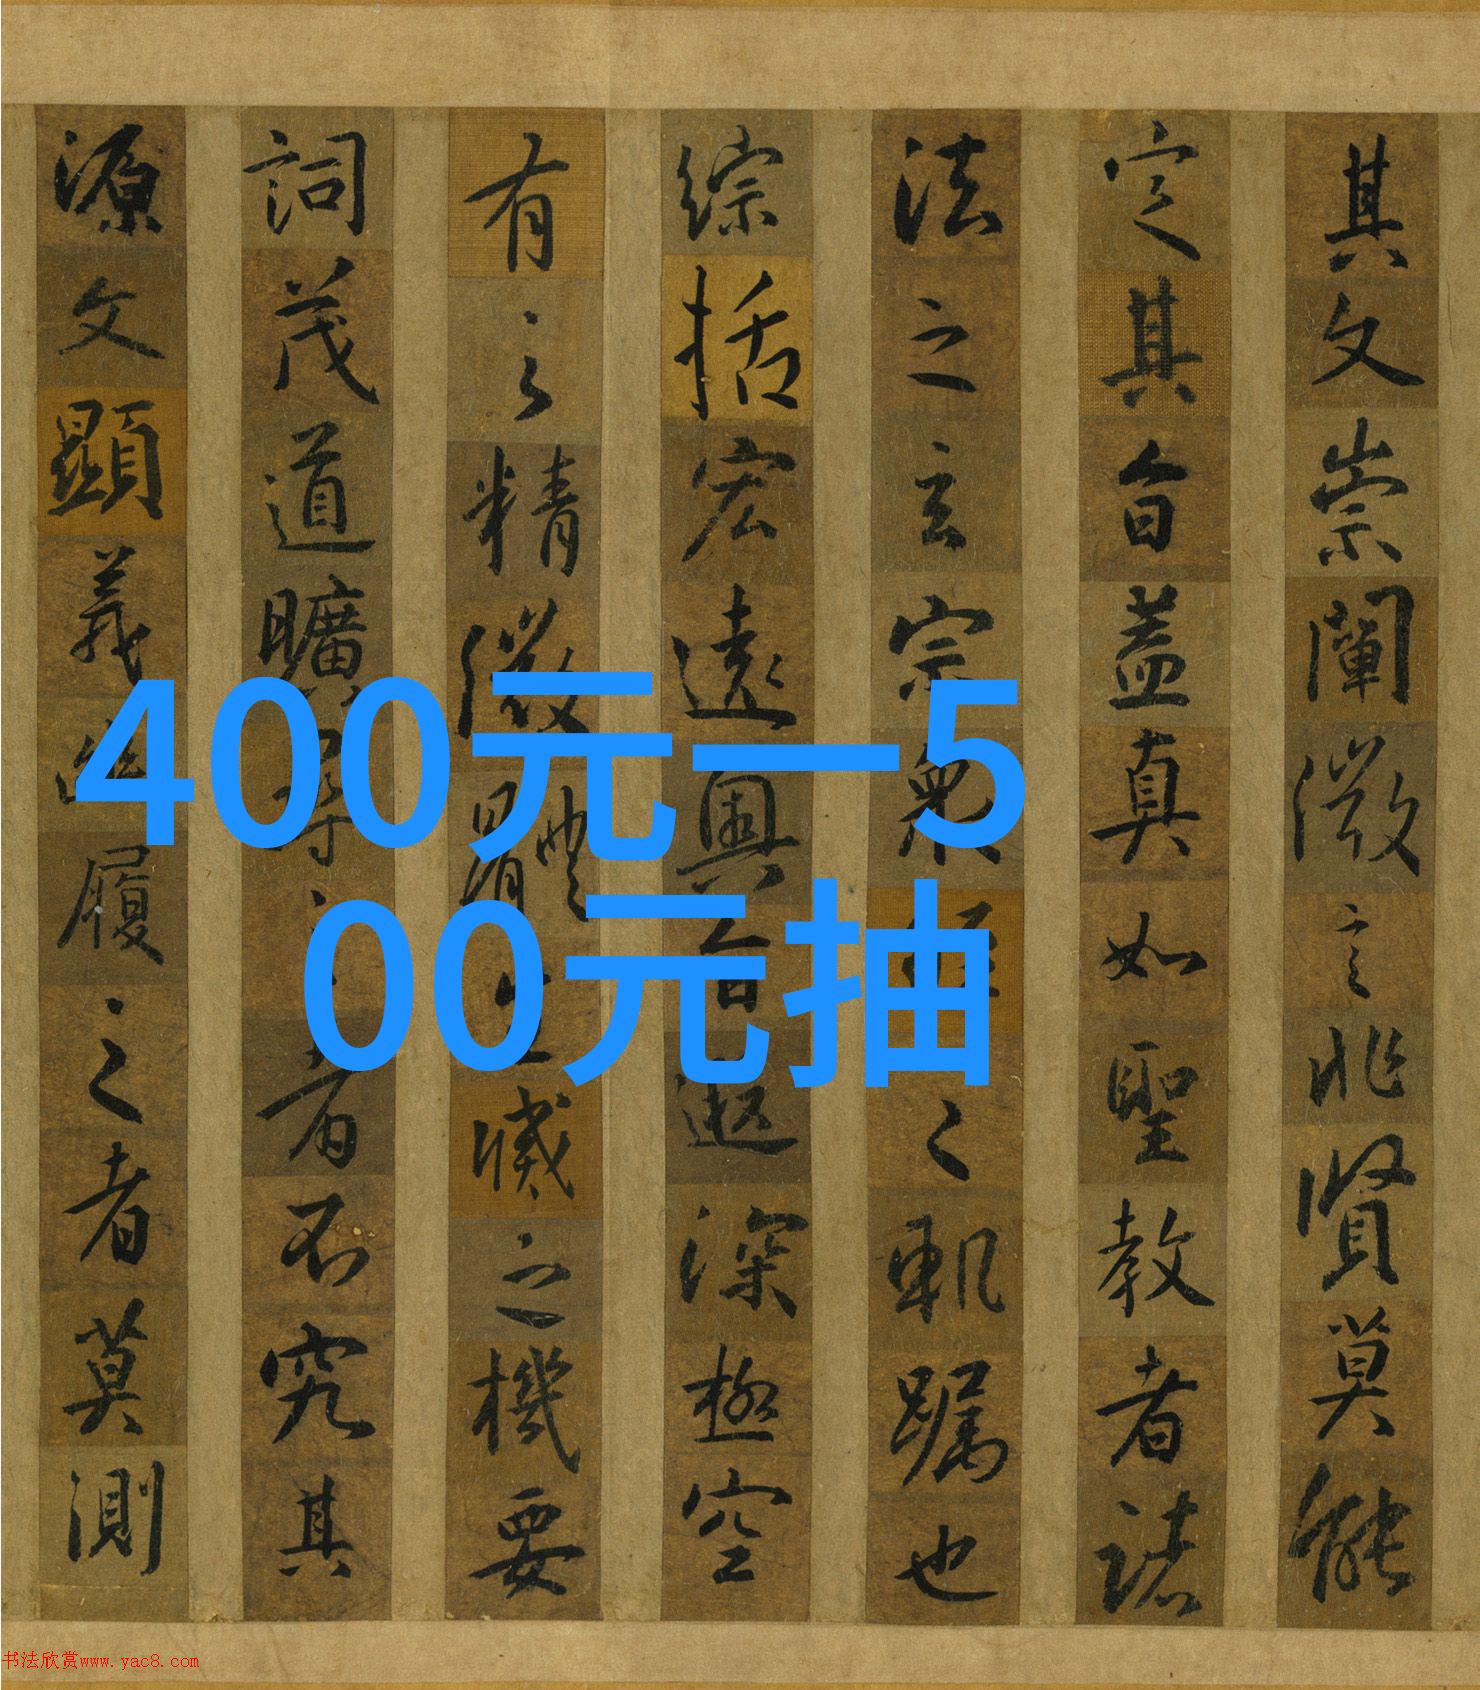 其文崇闡微言非賢莫能
定其旨蓋真如聖教者諸
法之玄宗眾經之軌躅也
綜括宏遠奧旨遐深極空
有之精微體生滅之機要
詞茂道曠尋之者不究其
源文顯義幽履之者莫測
400元一5
00元抽
书法欣赏www.yac8.com